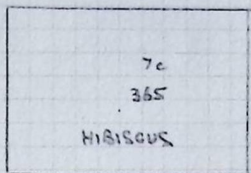 7c
365
HIBISCUS